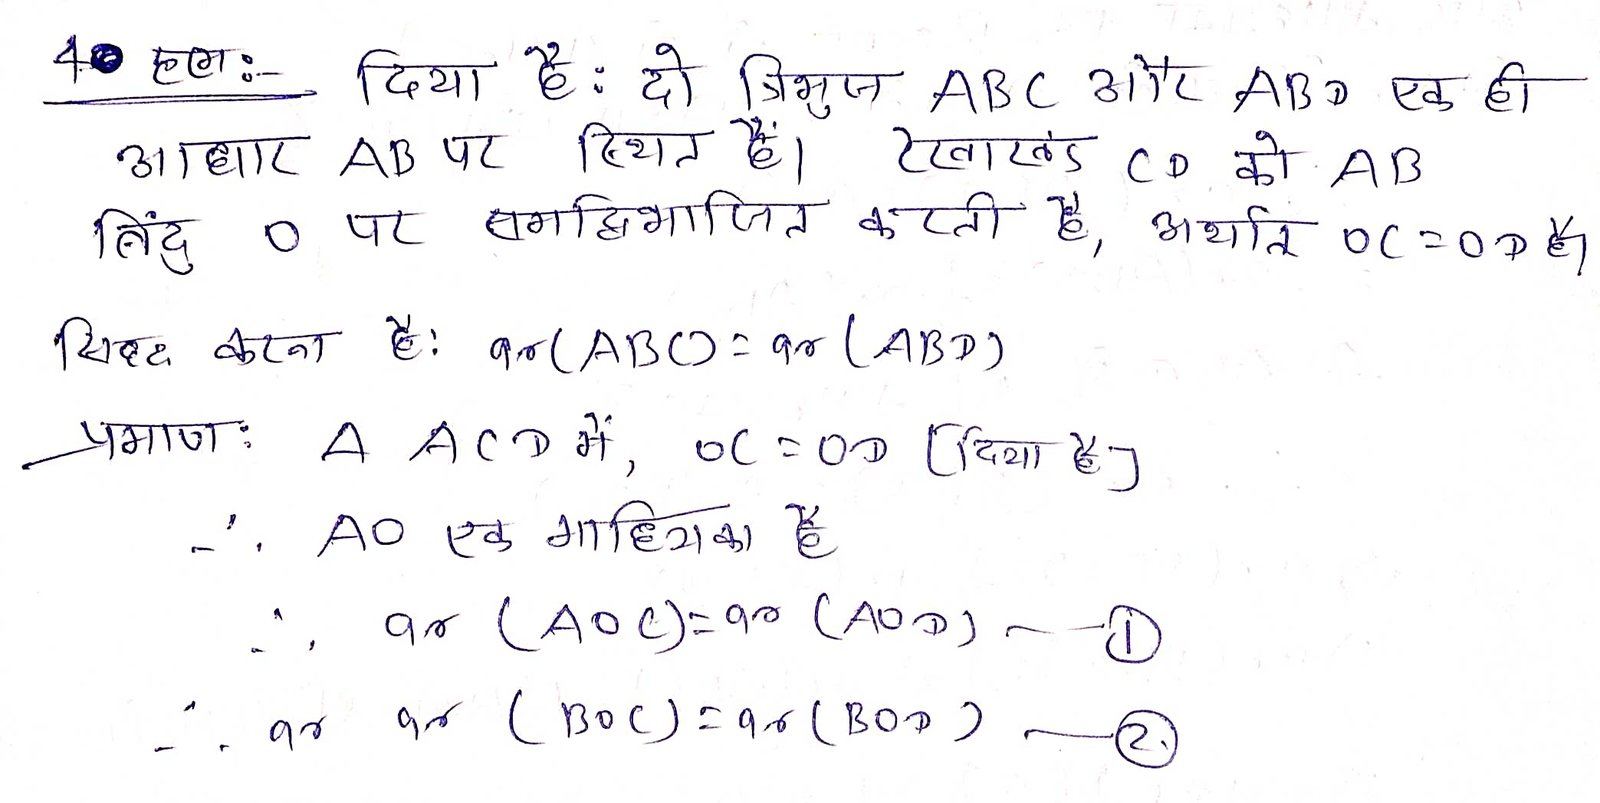 4 हल:-  दिया है: दो त्रिभुज ABC और ABD एक ही
आधार AB पर स्थित हैं। रेखाखंड CD को AB
बिंदु O पर समद्विभाजित करती है, अर्थात OC = OD है।
सिद्ध करना है: ar(ABC) = ar(ABD)
प्रमाण: Δ ACD में, OC = OD [दिया है]
∴ AO एक माध्यिका है
∴ ar (AOC) = ar (AOD) — ①
∴ ar ar (BOC) = ar (BOD) — ②